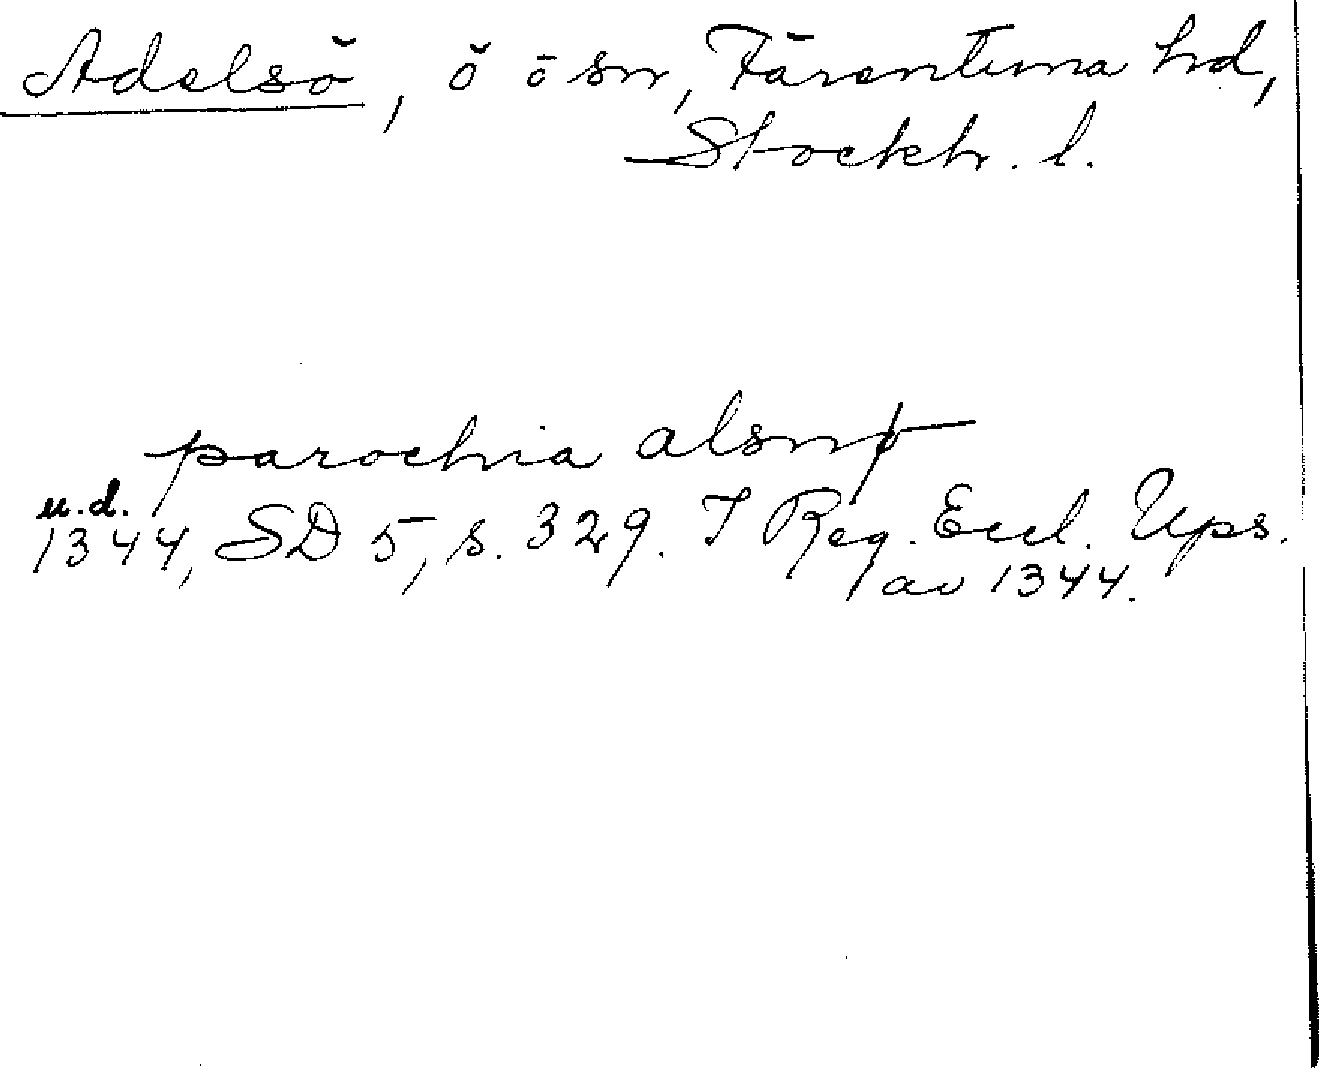 Adelsö, ö o sn, Färentuna hd,
Stockh. l.
parochia alsnø
u.d.
1344, SD 5, s. 329. I Reg. Eccl. Ups.
av 1344.